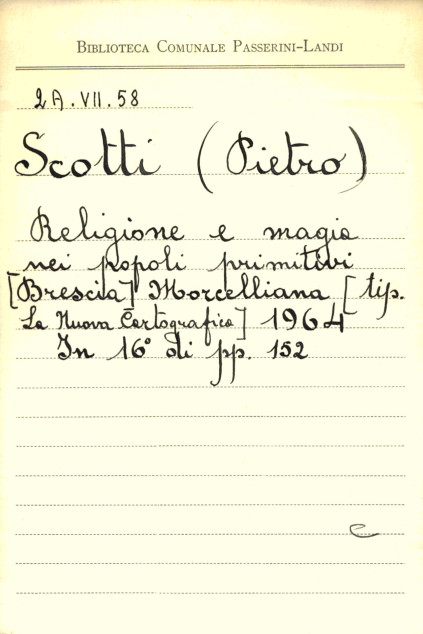 BIBLIOTECA COMUNALE PASSERINI-LANDI
2A.VII.58
Scotti (Pietro)
Religione e magia
nei popoli primitivi
[Brescia] Morcelliana [tip.
La Nuova Cartografica] 1964
In 16° di pp. 152
e